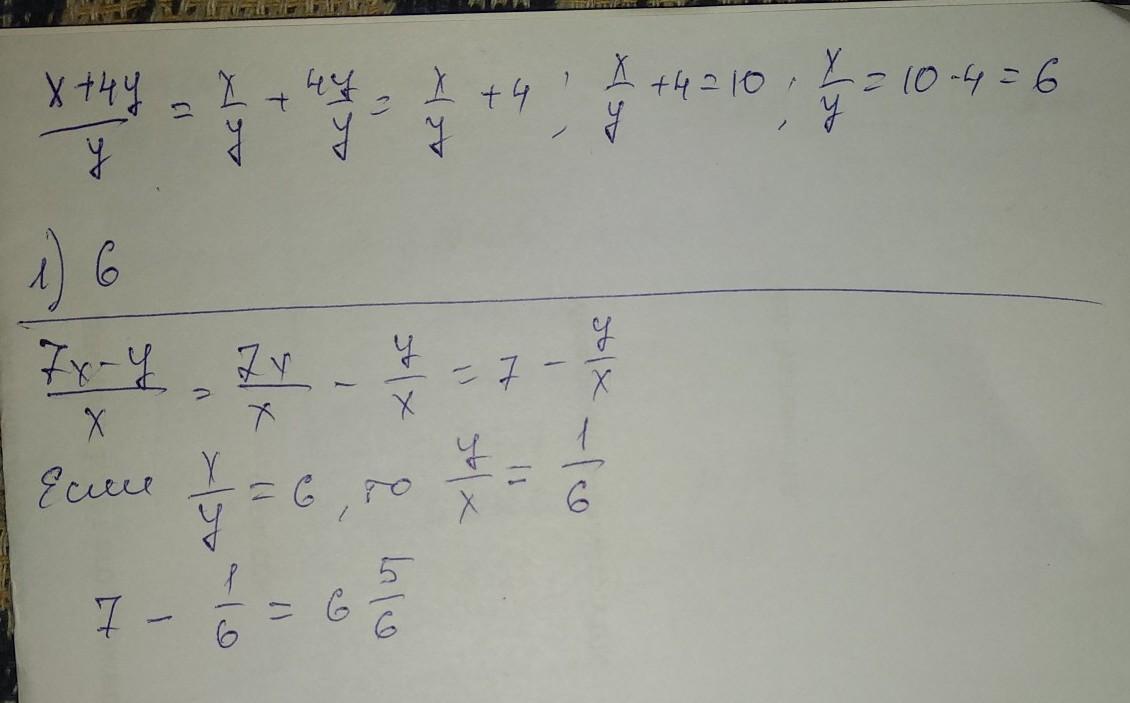 x+4y/y = x/y + 4y/y = x/y + 4 ; x/y + 4 = 10 ; x/y = 10 - 4 = 6
1) 6
7x-y/x = 7x/x - y/x = 7 - y/x
Если x/y = 6, то y/x = 1/6
7 - 1/6 = 6 5/6